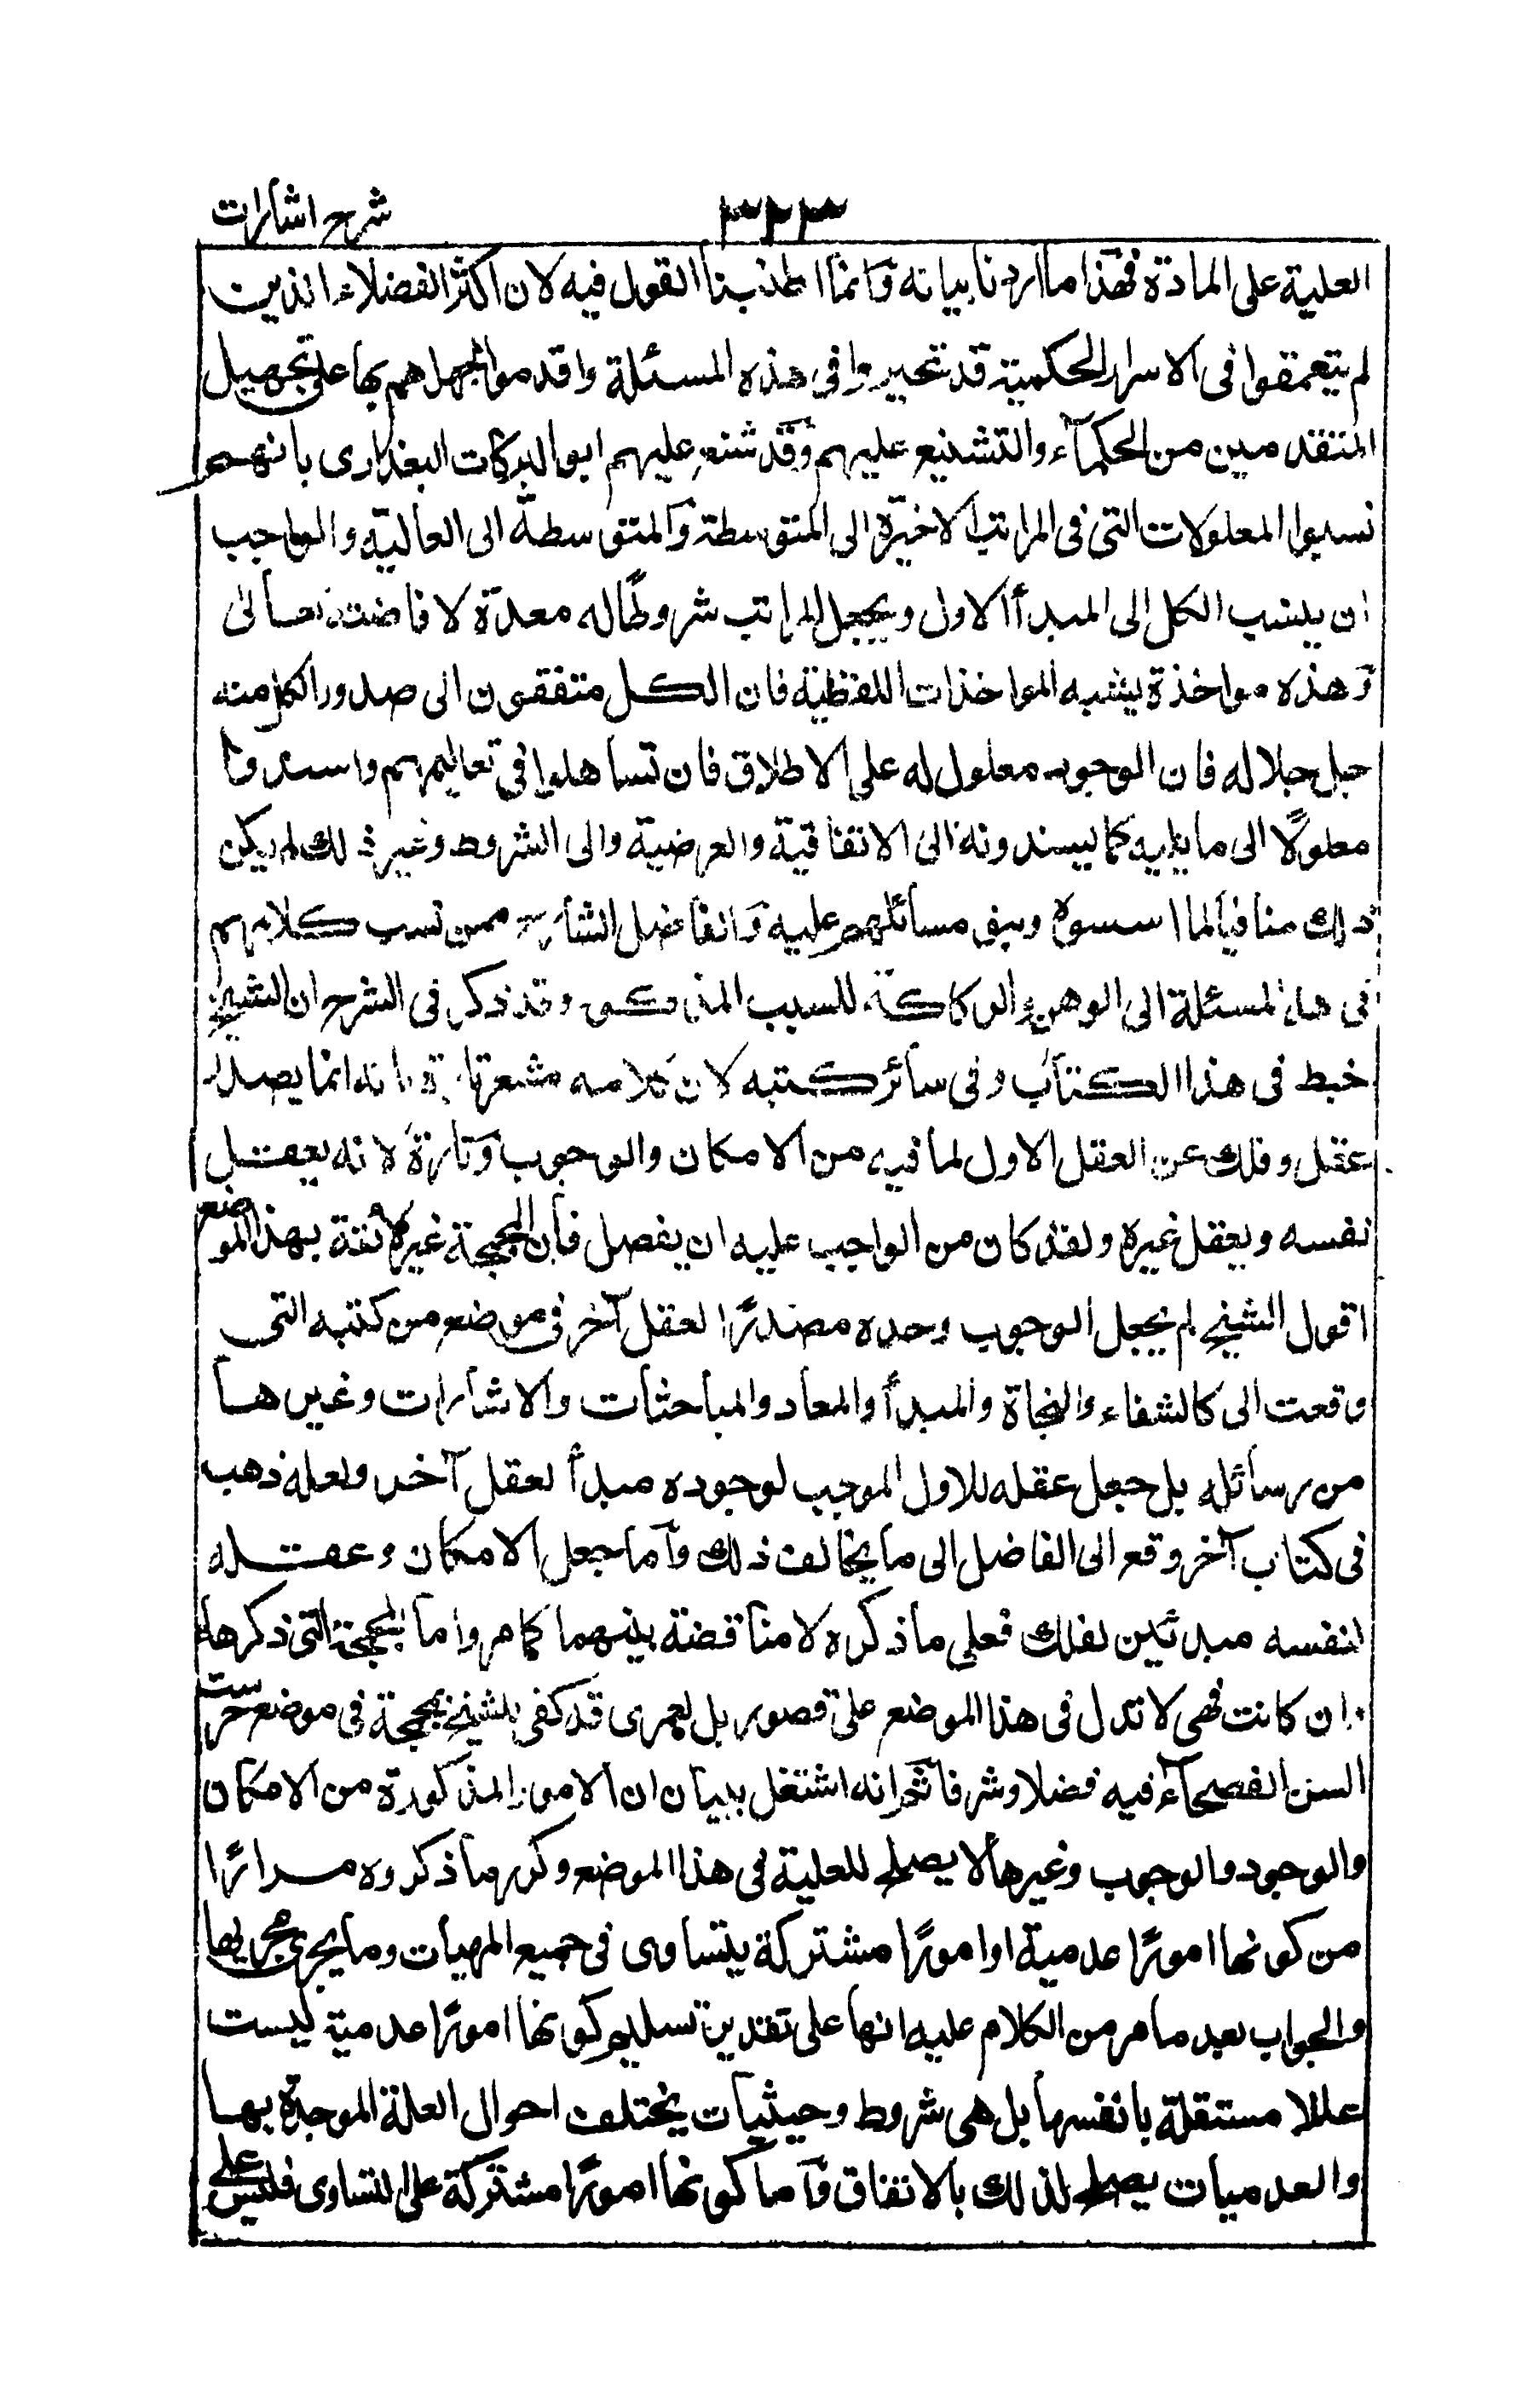 شرح اشارات
٣٢٣
العلية على المادة فهذا ما اردنا بيانه وانما اطنبنا القول فيه لان اكثر الفضلاء الذين
لم يتعمقوا فى الاسرار الحكمية قد تحيروا فى هذه المسئلة واقدموا لجهلهم بها على تجهيل
المتقدمين من الحكماء والتشنيع عليهم وقد شنع عليهم ابو البركات البغدادى بانهم
نسبوا المعلولات التى فى المراتب الاخيرة الى المتوسطة والمتوسطة الى العالية والواجب
ان ينسب الكل الى المبدأ الاول ويجعل المراتب شروطا له معدة لافاضته تعالى
وهذه مواخذة يشبه المواخذات اللفظية فان الكل متفقون الى صدور الكل منه
جل جلاله فان الوجود معلول له على الاطلاق فان تساهلوا فى تعاليمهم واسندوا
معلولًا الى ما يليه كما يسندونه الى الاتفاقية والعرضية والى الشروط وغير ذلك لم يكن
ذلك منافيا لما اسسوه وبنو مسائلهم عليه والفاضل الشارح ممن نسب كلامهم
فى هذه المسئلة الى الوهن والركاكة للسبب المذكور وقد ذكر فى الشرح ان الشيخ
خبط فى هذا الكتاب وفى سائر كتبه لان كلامه مشعر تارة بانه انما يصدر
عقل وفلك عن العقل الاول لما فيه من الامكان والوجوب وتارة لانه يعقل
نفسه ويعقل غيره ولقد كان من الواجب عليه ان يفصل فان المجمجة غير لائقة بهذا الموضع
اقول الشيخ لم يجعل الوجوب وحده مصدرًا لعقل آخر فى موضع من كتبه التى
وقعت الى كالشفاء والنجاة والمبدأ والمعاد والمباحثات والاشارات وغيرها
من رسائله بل جعل عقله للاول الموجب لوجوده مبدأ لعقل آخر ولعله ذهب
فى كتاب آخر وقع الى الفاضل الى ما يخالف ذلك واما جعل الامكان وعقله
لنفسه مبدئين لفلك فعلى ما ذكره لا مناقضة بينهما كما مر واما المجمجة التى ذكرها
وان كانت فهى لا تدل فى هذا الموضع على قصور بل لعمرى قد كفى بالشيخ بمجمجة فى موضع خرست
السن الفصحاء فيه فضلا وشرفا ثم انه اشتغل ببيان ان الامور المذكورة من الامكان
والوجود والوجوب وغيرها لا يصلح للعلية فى هذا الموضع وكرر ما ذكروه مرارًا
من كونها امورًا عدمية او امورًا مشتركة يتساوى فى جميع المهيات وما يجرى مجريها
والجواب بعد ما مر من الكلام عليه انها على تقدير تسليم كونها امورًا عدمية ليست
عللا مستقلة بانفسها بل هى شروط وحيثيات يختلف احوال العلة الموجدة بها
والعدميات يصلح لذلك بالاتفاق واما كونها امورًا مشتركة على التساوى فليس على